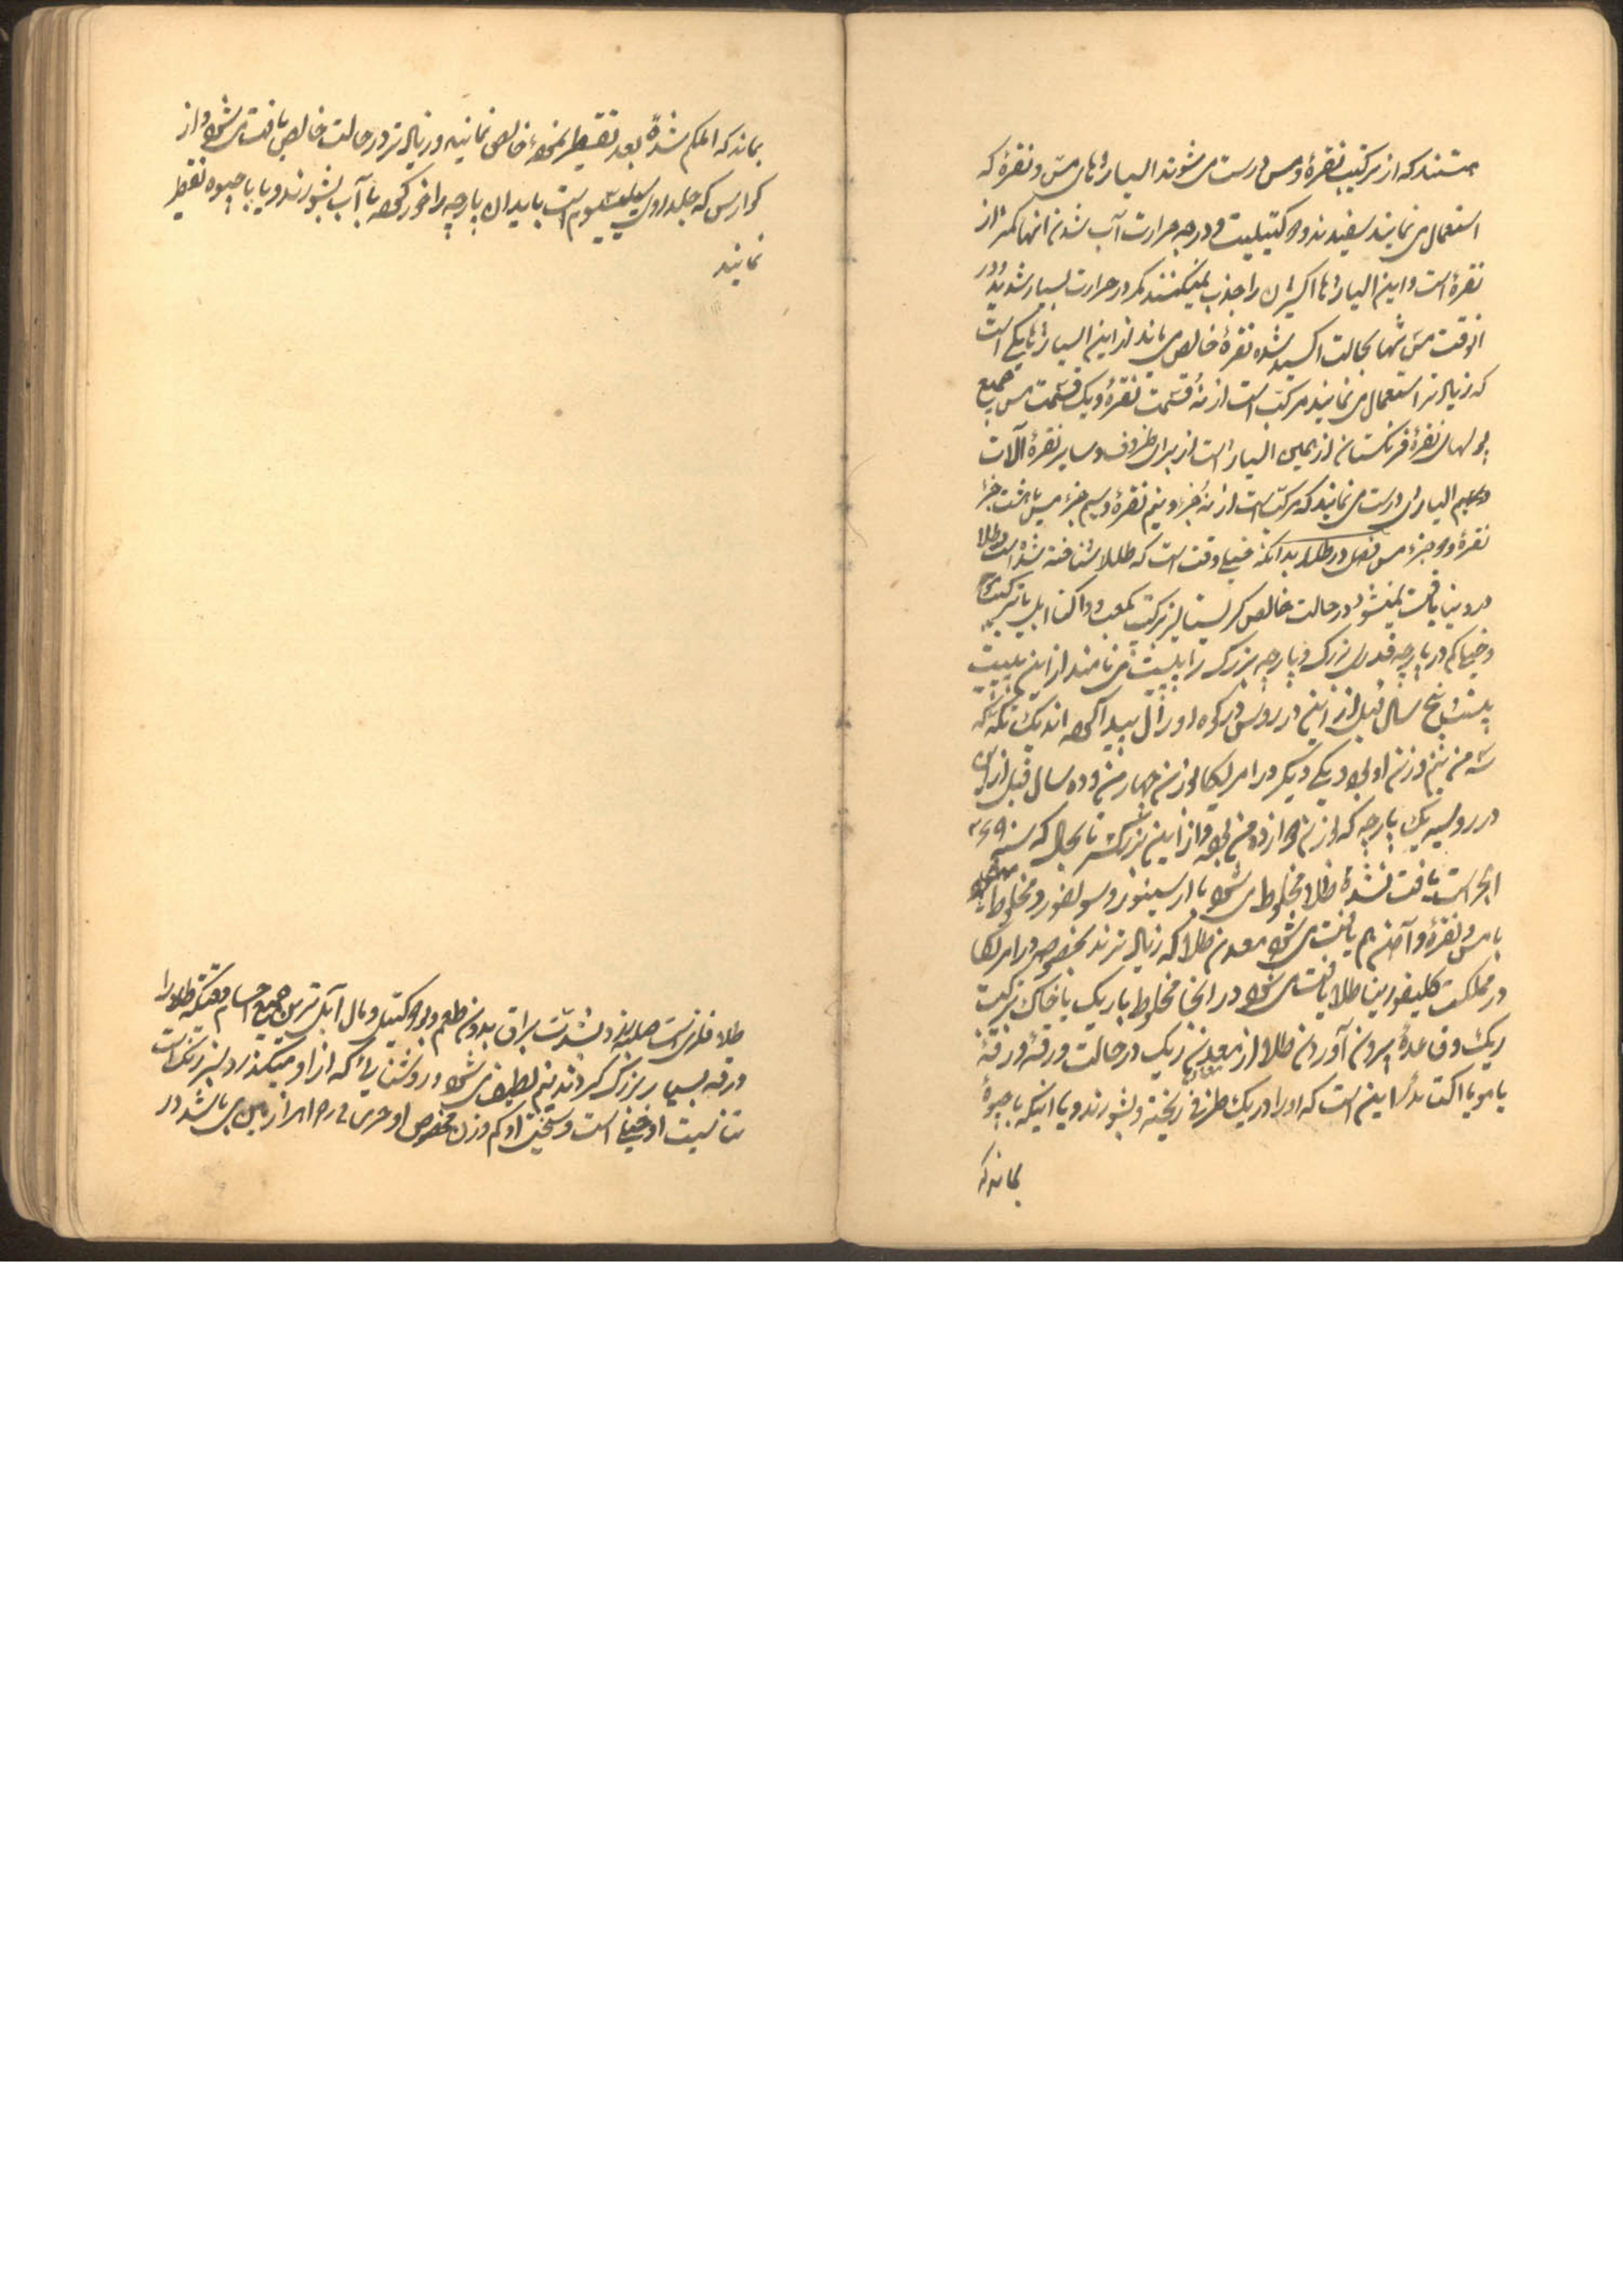 هستند که از ترکیب نقره و مس درست می شوند الیاژهای مس و نقره که
استعمال می نمایند سفیدند و دوکتیلیت و درجه حرارت آب شدن انها کمتر از
نقره است و این الیاژها اکسیژن را جذب نمیکنند مگر در حرارت بسیار شدید و در
انوقت مس تنها بحالت اکسید شده نقره خالص می ماند از این الیاژها یکی است
که زیادتر استعمال می نمایند مرکب است از نه قسمت نقره و یک قسمت مس جمیع
پولهای نقره فرنگستان از همین الیاژ است از برای ظروف و سایر نقره آلات
الیاژی درست می نمایند که مرکب است از نه جزء و نیم نقره و نیم جزء مس یا هشت جزء
نقره و دو جزء مس فصل در طلا بدانکه خیلی وقت است که طلا شناخته شده است طلا
در دنیا یافت میشود در حالت خالص کریستالیز ترکیب مکعب و اکتاایل یا ترکیب
و خیلی کم در پارچه قدری بزرگ و پارچه بزرگ را پلیت می نامند از این پلیت
بیست پنج سال قبل از این در روس در کوه اورال پیدا کرده اند یک تکه که
شه من نیم وزن او بود یکی دیگر در امریکا بوزن چهار من و ده سال قبل از این
در روسیه یک پارچه که بوزن دوازده من بود و از این بزرگتر تا بحال که سنه ۱۲۶۹
است یافت نشده طلا مخلوط می شود با ارسینور و سولفور و مخلوط
با مس و نقره و آهن هم یافت می شود معدن طلا که زیادترند بخصوص در امریکا
در مملکت کلیفورنیا طلا یافت می شود در انجا مخلوط با ریک یا خاک ترکیب
ریک و قاعده بیرون آوردن طلا از معدن ریک در حالت ورقه ورقه
یا مو یا اکتائدر این است که اورا در یک ظرفی ریخته و بشورند و یا اینکه با جیوه
بماند که
بماند که المکم شده بعد تقطیر نموده خالص نمایند و زیادتر در حالت خالص یافت می شود و از
کوارس که جلد اوی سیلیسیوم است باید ان پارچه را خورد کرده با آب بشورند و یا با جیوه تقطیر
نمایند
طلا فلزی است صلبند و بشدت براق بدون طعم و بو دوکتیل و مال آبل ترین جمیع اجسام وقتیکه طلا را
ورقه بسیار بزرگ کردند نیم لطیف می شود و روشنائی که از او میگذرد سبز رنگ است
تناسیت او خیلی است و سختی او کم وزن مخصوص او در حرارت از مابین می باشد در